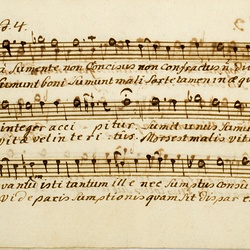 A Sumente non Concisus non confractus n. di
sumunt boni sumunt mali Sorte tamen inæqu
integer acci - pitur. Sumit unus sumu
vitæ vel interi - tus. Mors est malis vita
vantum isti tantum ille nec sumptus consu
vide paris sumptionis quam sit dispar e